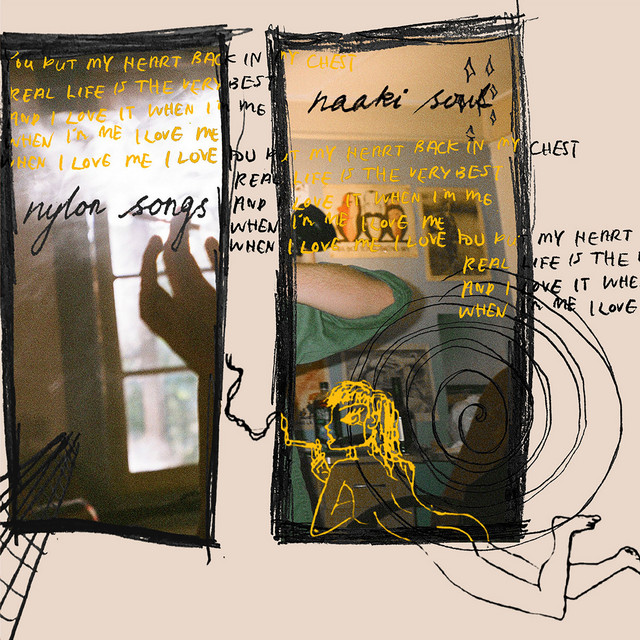 YOU PUT MY HEART BACK IN MY CHEST
REAL LIFE IS THE VERY BEST
AND I LOVE IT WHEN I'M ME
WHEN I'M ME I LOVE ME
WHEN I LOVE ME I LOVE YOU PUT MY HEART BACK IN MY CHEST
REAL LIFE IS THE VERY BEST
AND I LOVE IT WHEN I'M ME
WHEN I'M ME I LOVE ME
WHEN I LOVE ME I LOVE YOU PUT MY HEART
REAL LIFE IS THE
AND I LOVE IT WHE
WHEN I'M ME I LOVE
naaki soul
nylon songs